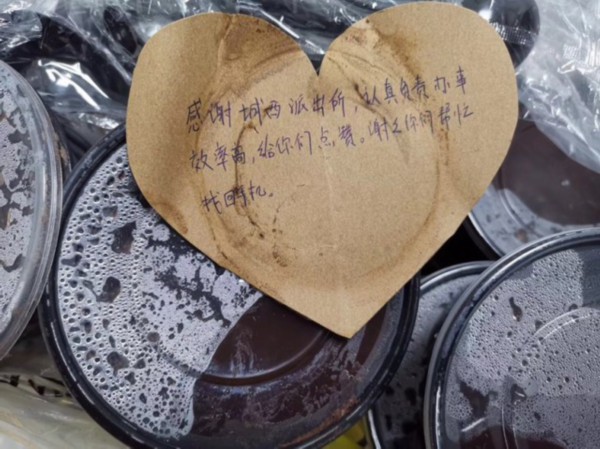 感谢城西派出所，认真负责办事
效率高，给你们点赞。谢谢你们帮忙
找回手机。